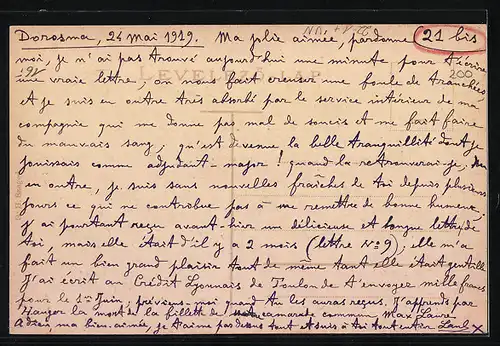 Dorosma, 24 Mai 1919. Ma jolie aimée, pardonne 21 bis
moi, je n'ai pas trouvé aujourd'hui une minute pour t'écrire
une vraie lettre, on nous fait creuser une foule de tranchées 200
et je suis en outre très absorbé par le service intérieur de ma
compagnie qui me donne pas mal de soucis et me fait faire
du mauvais sang, qu'est devenue la belle tranquillité dont je
jouissais comme adjudant-major ! quand la retrouverai-je,
en outre, je suis sans nouvelles fraîches de toi depuis plusieurs
jours ce qui ne contribue pas à me remettre de bonne humeur,
j'ai pourtant reçu avant-hier une délicieuse et longue lettre de
toi, mais elle était d'il y a 2 mois (lettre No 9) ; elle m'a
fait un bien grand plaisir tout de même tant elle était gentille
J'ai écrit au Crédit Lyonnais de Toulon de t'envoyer mille francs
pour le 1er Juin, préviens-moi quand tu les auras reçus. J'apprends par
la mort de la fillette de camarade commun Max Laure
Adieu, ma bien-aimée, je t'aime par dessus tout et suis à toi tout entier